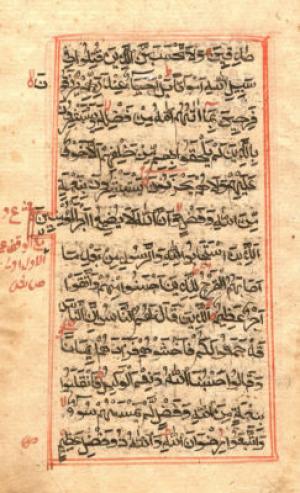 صدقين ولا تحسبن الذين قتلوا في
سبيل الله امواتا بل احياء عند ربهم يرزقون
فرحين بما اتىهم الله من فضله ويستبشرون
بالذين لم يلحقوا بهم من خلفهم الا خوف
عليهم ولا هم يحزنون يستبشرون بنعمة
من الله وفضل وان الله لا يضيع اجر المومنين
الذين استجابوا لله والرسول من بعد ما
اصابهم القرح للذين احسنوا منهم واتقوا
اجر عظيم الذين قال لهم الناس ان الناس
قد جمعوا لكم فاخشوهم فزادهم ايمانا
وقالوا حسبنا الله ونعم الوكيل فانقلبوا
بنعمة من الله وفضل لم يمسسهم سوء
واتبعوا رضوان الله والله ذو فضل عظيم